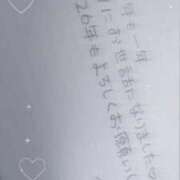 年も一年
にお世話になりました
26年もよろしくお願いし